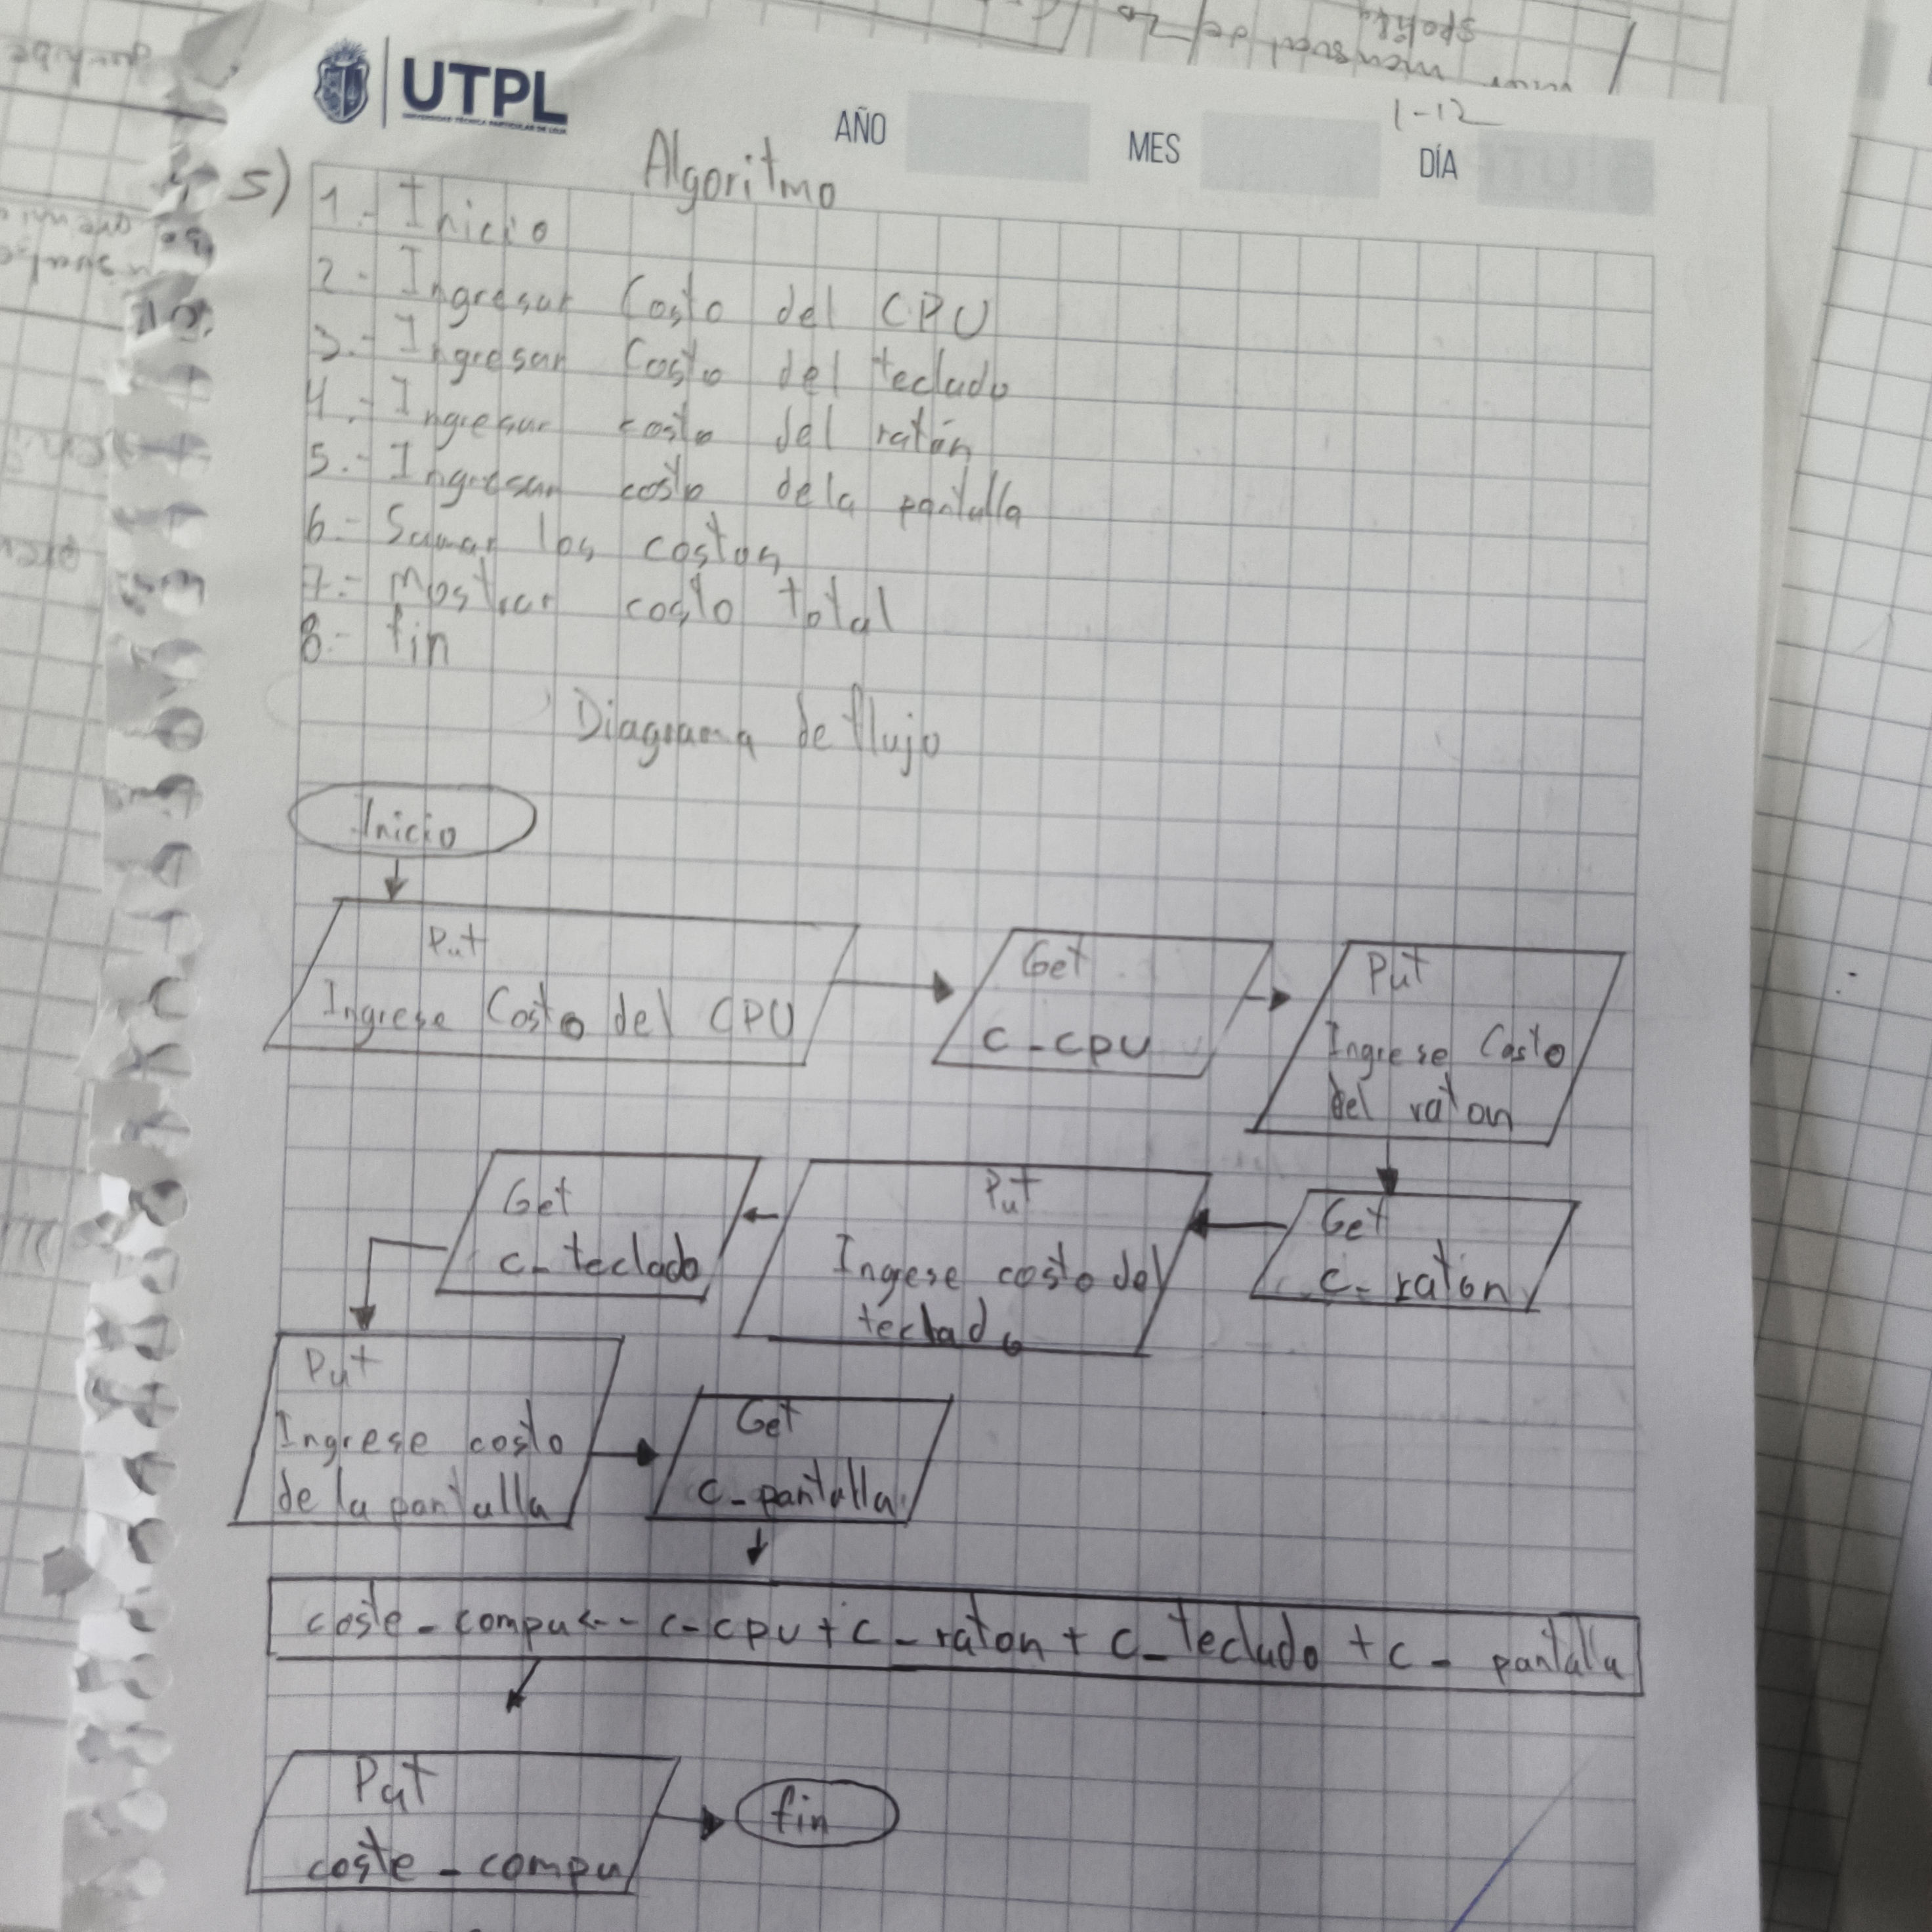 UTPL
UNIVERSIDAD TÉCNICA PARTICULAR DE LOJA
AÑO
MES
1-12
DÍA
5)
Algoritmo
1.- Inicio
2.- Ingresar Costo del CPU
3.- Ingresar Costo del teclado
4.- Ingresar costo del ratón
5.- Ingresar costo dela pantalla
6.- Sumar los costos
7.- Mostrar costo total
8.- fin
Diagrama de flujo
Inicio
Put
Ingrese Costo del CPU
Get
c_cpu
Put
Ingrese Costo
del raton
Get
c_raton
Put
Ingese costo del
teclado
Get
c_teclado
Put
Ingrese costo
de la pantalla
Get
c_pantalla
coste_compu<-- c-cpu + c_raton + c_teclado + c_pantalla
Put
coste_compu
fin